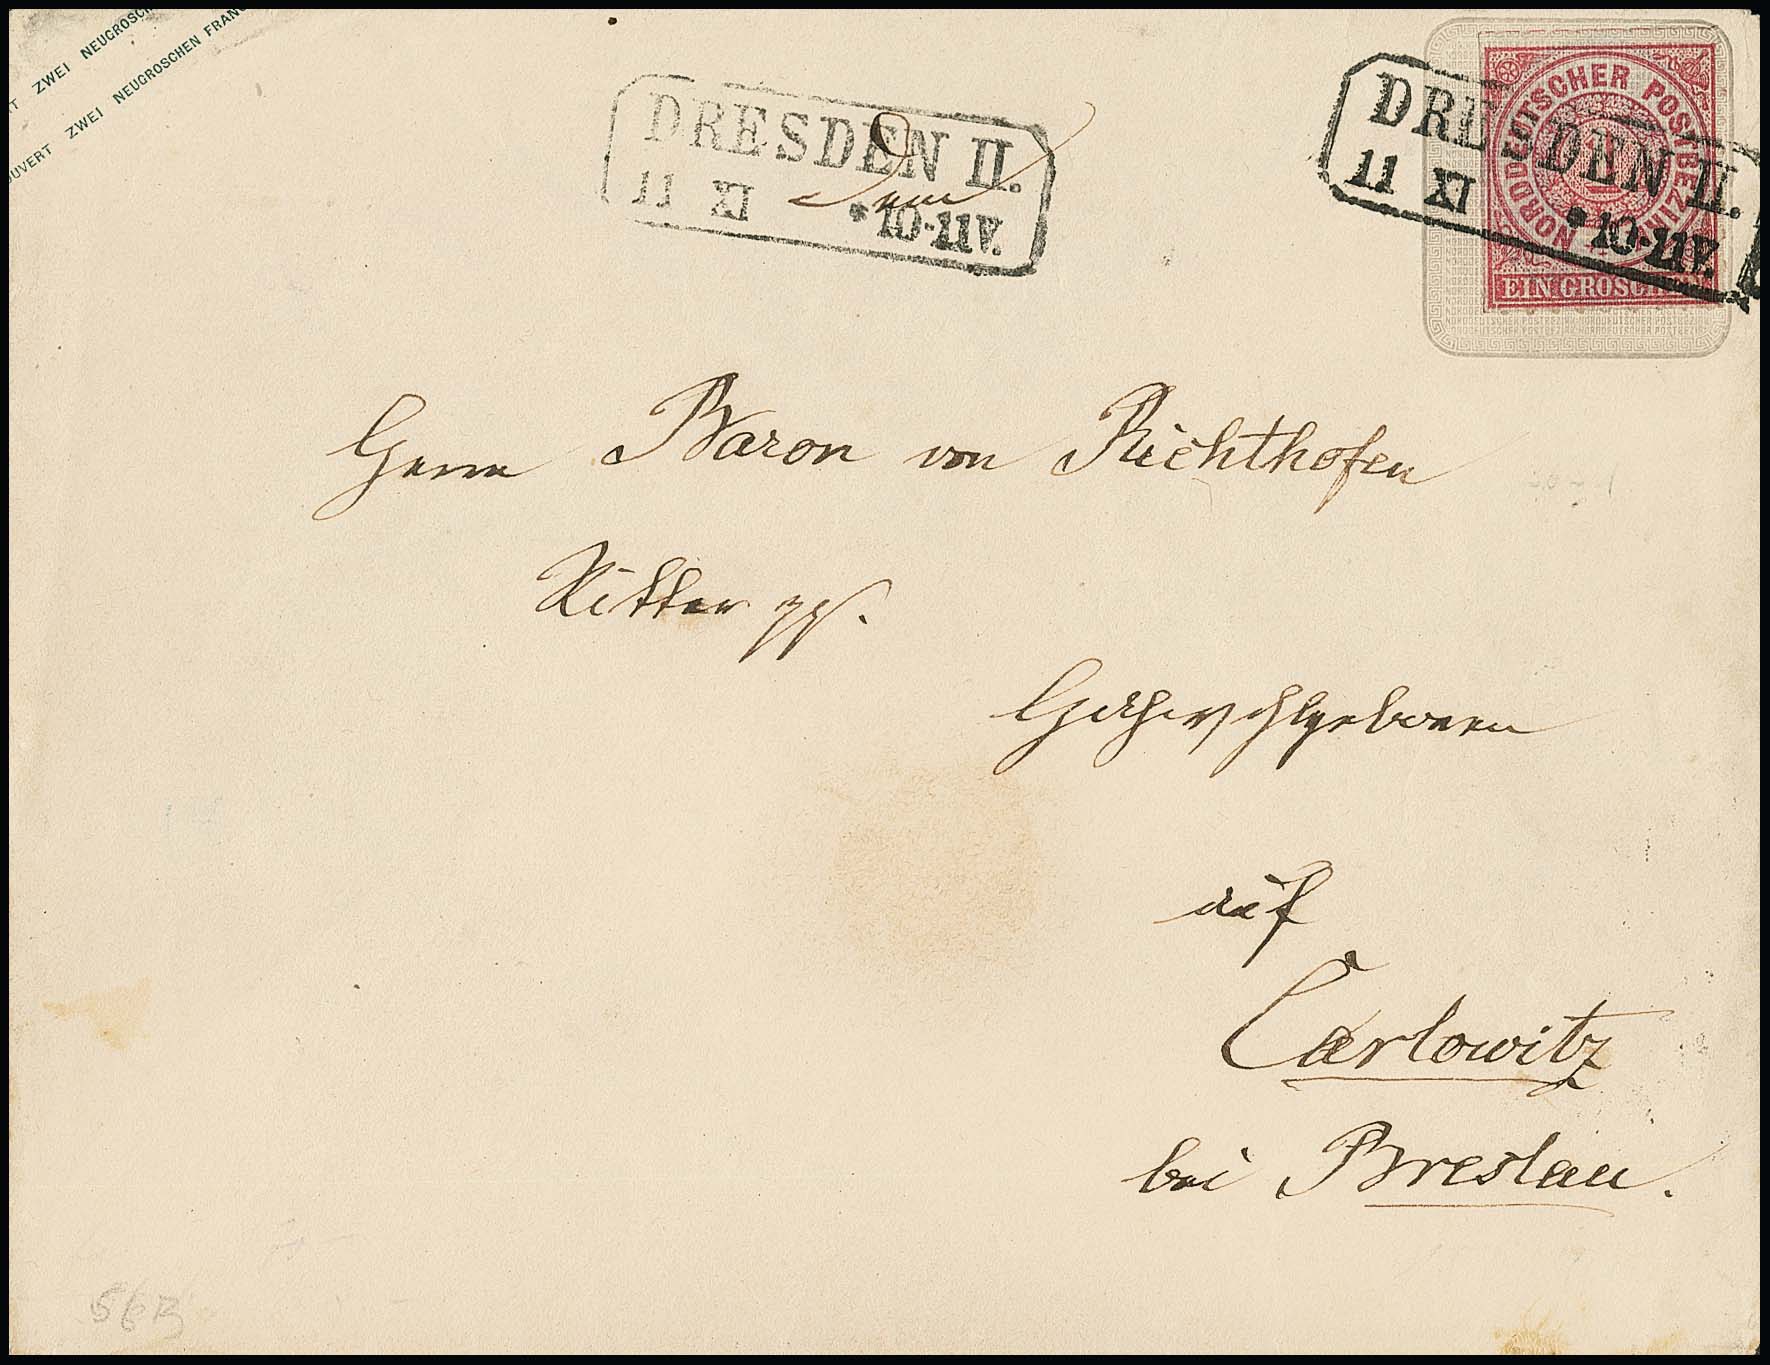 ZWEI NEUGROSCH
OUVERT ZWEI NEUGROSCHEN FRANC
DRESDEN II.
11 XI *10-11V.
NORDDEUTSCHER POSTBEZIRK
EIN GROSCHEN
DRESDEN II.
11 XI *10-11V.
NORDDEUTSCHER POSTBEZIRK NORDDEUTSCHER POSTBEZIRK
Herrn Baron von Richthofen
Ritter pp.
Hochwohlgeboren
auf
Carlowitz
bei Breslau.